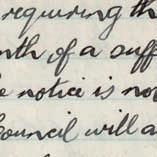 requiring th
nth of a suff
e notice is no
Council will a